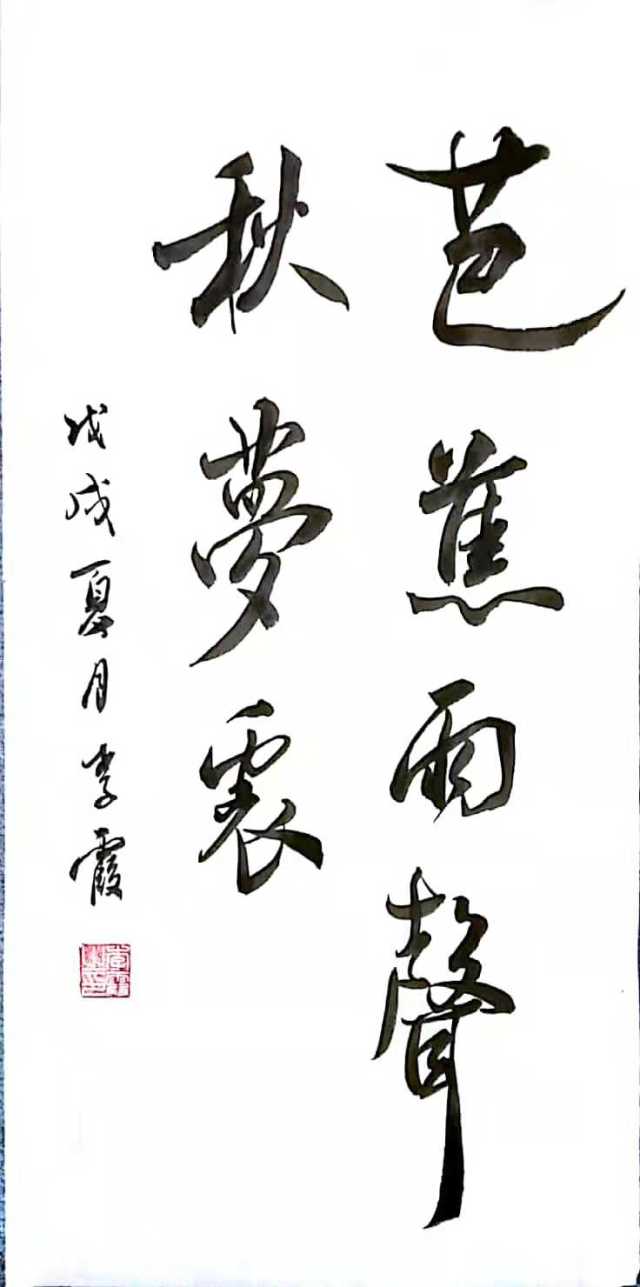 芭蕉雨聲
秋夢裏
戊戌夏月李霞